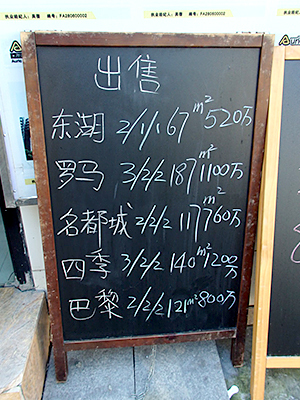 执业经纪人：吴蓉 编号：FA280800002
执业经纪人：吴蓉 编号：FA280800002
出售
东湖 2/1/1 67m² 520万
罗马 3/2/2 187m² 1100万
名都城 2/2/2 117m² 760万
四季 3/2/2 140m² 1200万
巴黎 2/2/2 121m² 800万